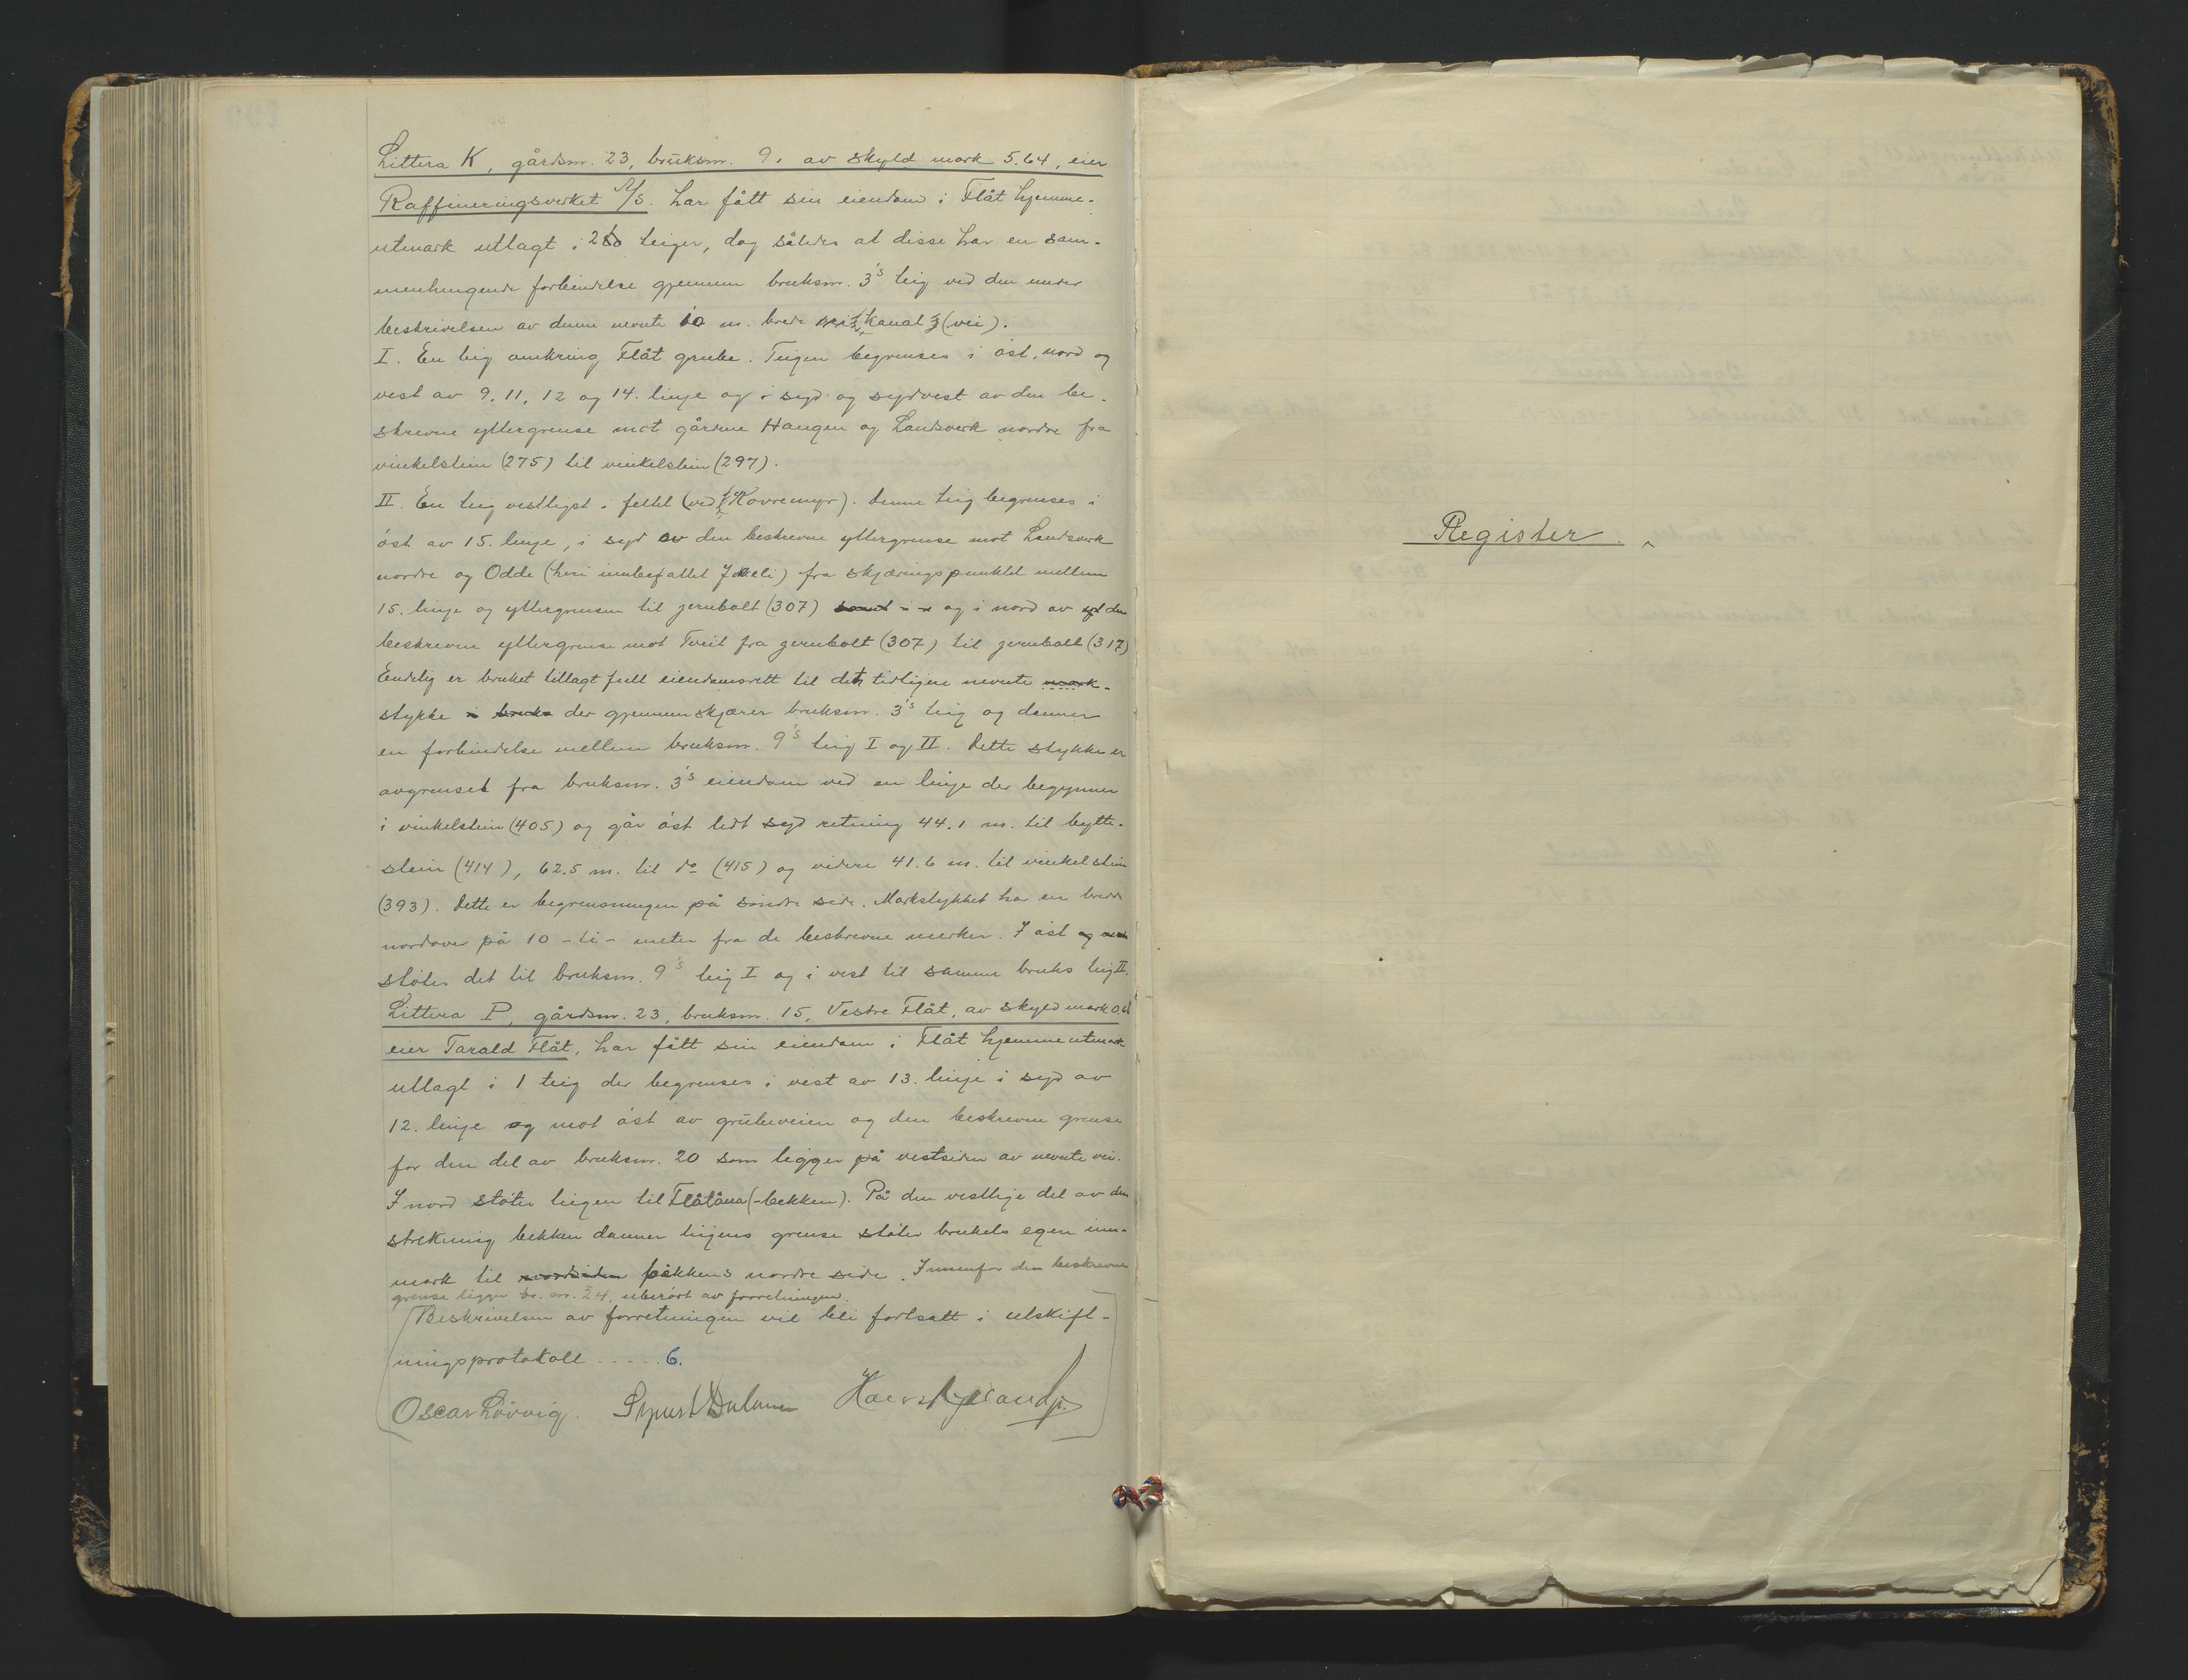 Littera K, gårdsnr. 23, bruksnr. 9, av skyld mark 5.64, eier
Raffineringsverket A/S. har fått sin eiendom i Flåt hjemme-
utmark utlagt i 2 to teiger, dog således at disse har en sam-
menhengende forbindelse gjennem bruksnr. 3's teig ved den under
beskrivelsen av denne nevnte 10 m. brede kanal (vei).
I. En teig omkring Flåt grube. Teigen begrenses i øst, nord og
vest av 9, 11, 12 og 14. linje og i syd og sydvest av den be-
skrevne yttergrense mot gårdene Haugen og Landsverk nordre fra
vinkelstein (275) til vinkelstein (297).
II. En teig vestligst i feltet (ved Kovremyr). Denne teig begrenses i
øst av 15. linje, i syd av den beskrevne yttergrense mot Landsverk
nordre og Odde (heri innbefattet Jokeli) fra skjæringspunktet mellem
15. linje og yttergrensen til jernbolt (307) samt i og i nord av den
beskrevne yttergrense mot Tveit fra jernbolt (307) til jernbolt (317)
Endelig er bruket tillagt full eiendomsrett til det tidligere nevnte mark-
stykke i bruks der gjennemskjærer bruksnr. 3's teig og danner
en forbindelse mellem bruksnr. 9's teig I og II. Dette stykke er
avgrenset fra bruksnr. 3's eiendom ved en linje der begynner
i vinkelstein (405) og går øst litt syd retning 44.1 m. til bytte-
stein (414), 62.5 m. til do (415) og videre 41.6 m. til vinkelstein
(393). Dette er begrensningen på søndre side. Markstykket har en bredde
nordover på 10 - ti - meter fra de beskrevne merker. I øst og
støter det til bruksnr. 9's teig I og i vest til samme bruks teig II.
Littera P, gårdsnr. 23, bruksnr. 15, Vestre Flåt, av skyld mark 0.61
eier Tarald Flåt, har fått sin eiendom i Flåt hjemmeutmark
utlagt i 1 teig der begrenses i vest av 13. linje i syd av
12. linje og mot øst av grubeveien og den beskrevne grense
for den del av bruksnr. 20 som ligger på vestsiden av nevnte vei.
I nord støter teigen til Flåtåna (-bekken). På den vestlige del av den
strekning bekken danner teigens grense støter brukets egen inn-
mark til nordsiden bekkens nordre side. Innenfor den beskrevne
grense ligger br. nr. 24, uberørt av forretningen.
Beskrivelsen av forretningen vil bli fortsatt i utskift-
ningsprotokoll ..... 6.
Oscar Løvvig.
Register.